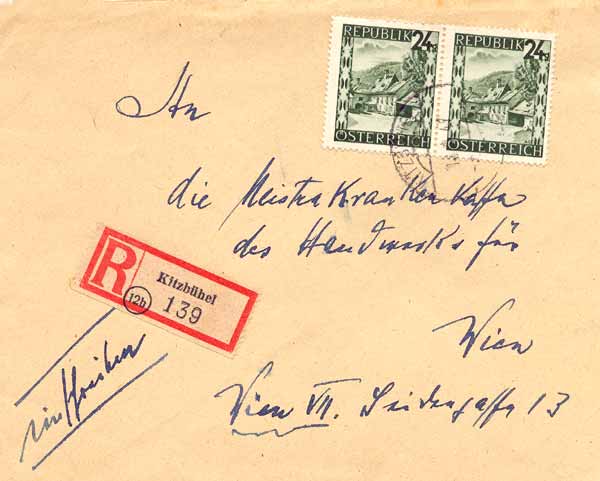 REPUBLIK 24g REPUBLIK 24g
ÖSTERREICH ÖSTERREICH
An
die Meisterkrankenkassa
des Handwerks für
Wien
Wien VII. Seidengasse 13
R Kitzbühel
12b 139
einschreiben